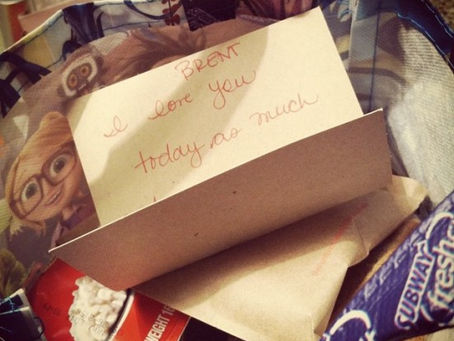 BRENT
I love you
today as much
WEIGHT 1
SUBWAY
fresh